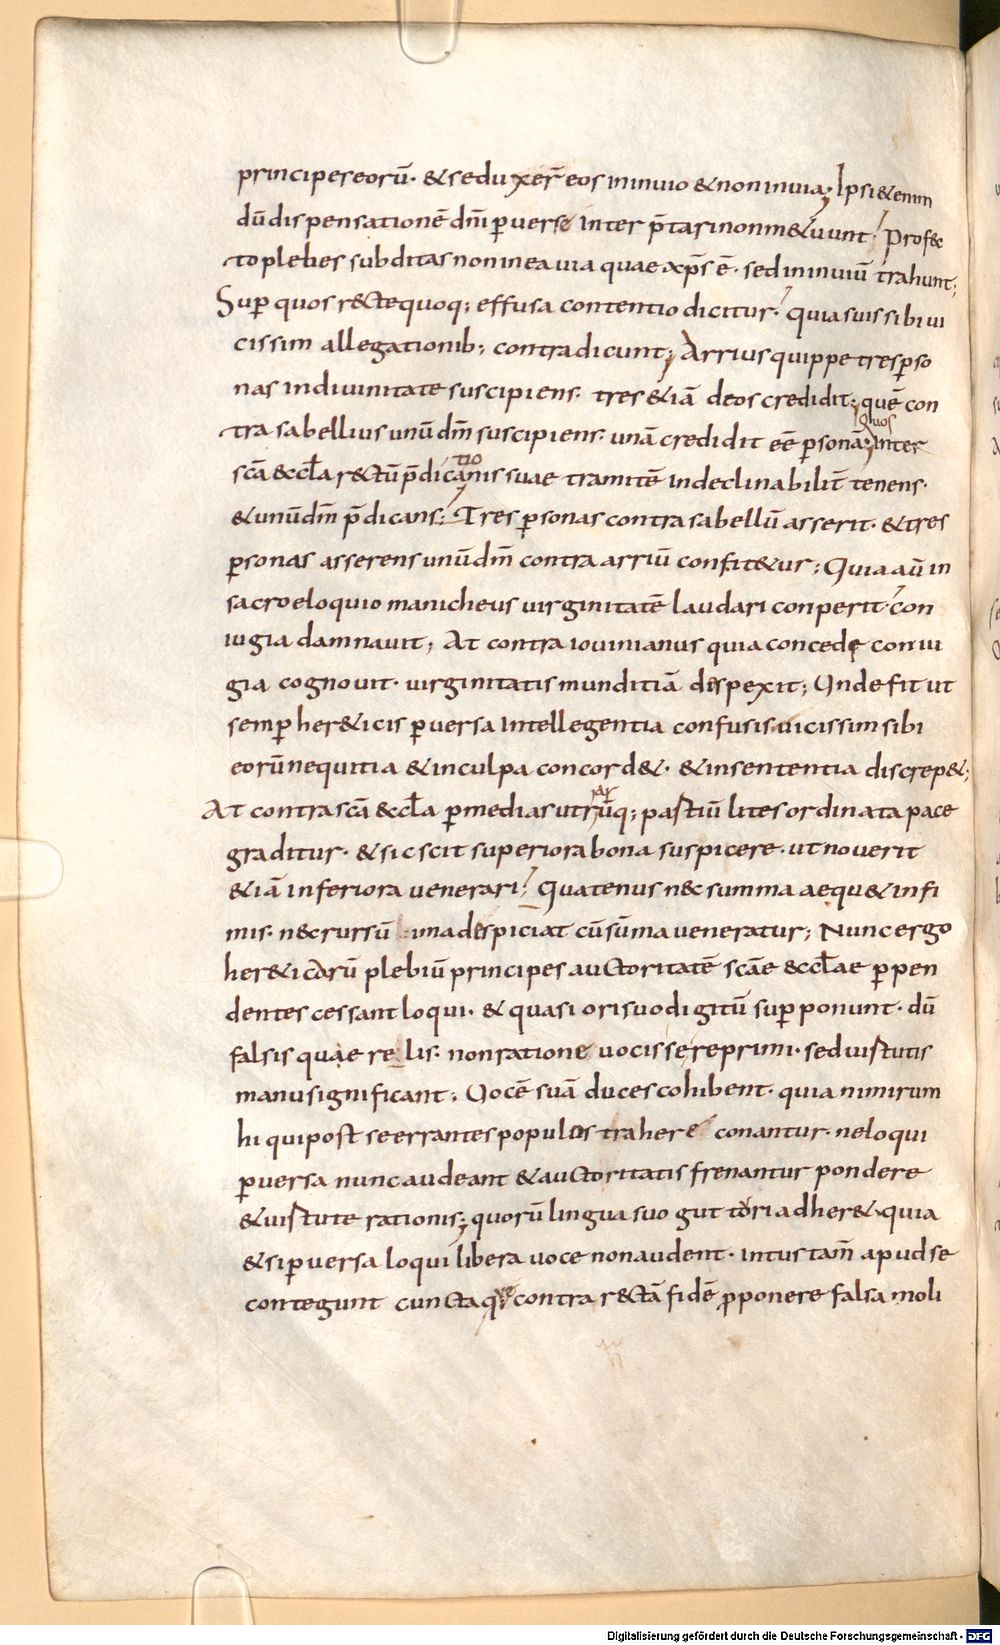 principes eorū· & seduxer̄ eos in inuio & non in uia; Ipsi & enim
dū dispensationē dm̄i ꝑuerse inter p̄tari non m&uunt· Profec
to plebes subditas non in ea uia quae xp̄s ē· sed in inuiū trahunt;
Suꝑ quos r&cte quoq; effusa contentio dicitur· quia suis sibi ui
cissim allegationib; contradicunt; Arrius quippe tres ꝑso
nas in diuinitate suscipiens· tres &iā deos credidit; quē con
tra sabellius unū dm̄ suscipiens· unā credidit eē ꝑsonā; Inter quos
scā &ccl̄a r&ctū p̄dicationis suae tramitē indeclinabilit̄ tenens·
& unū dm̄ p̄dicans; Tres ꝑsonas contra sabellū asserit· & tres
ꝑsonas asserens unū dm̄ contra arriū confit&ur; Quia aū in
sacro eloquio manicheus uirginitatē laudari conperit· con
iugia damnauit; At contra iouinianus quia concede coniu
gia cognouit· uirginitatis munditiā despexit; Unde fit ut
semꝑ her&icis ꝑuersa intellegentia confusis uicissim sibi
eorū nequitia & in culpa concord&· & in sententia discrep&;
At contra scā &ccl̄a ꝑ medias utrarūq; partiū lites ordinata pace
graditur· & sic scit superiora bona suspicere· ut nouerit
&iā inferiora uenerari; Quatenus nec summa aequ& infi
mis· nec rursū ima despiciat cū sūma ueneratur; Nunc ergo
her&icorū plebiū principes auctoritatē scāe &ccl̄ae ꝑpen
dentes cessant loqui· & quasi ori suo digitū suꝑponunt· dū
falsis quaerelis· non ratione uocis se reprimi· sed uirtutis
manu significant; Uocē suā duces cohibent· quia nimirum
hi qui post se errantes populos trahere conantur· ne loqui
ꝑuersa nunc audeant & auctoritatis frenantur pondere
& uirtute rationis; quorū lingua suo gutturi adher& quia
& si ꝑuersa loqui libera uoce non audent· intus tam̄ apud se
contegunt cuncta quae contra r&ctā fidē ꝓponere falsa moli
Digitalisierung gefördert durch die Deutsche Forschungsgemeinschaft - DFG